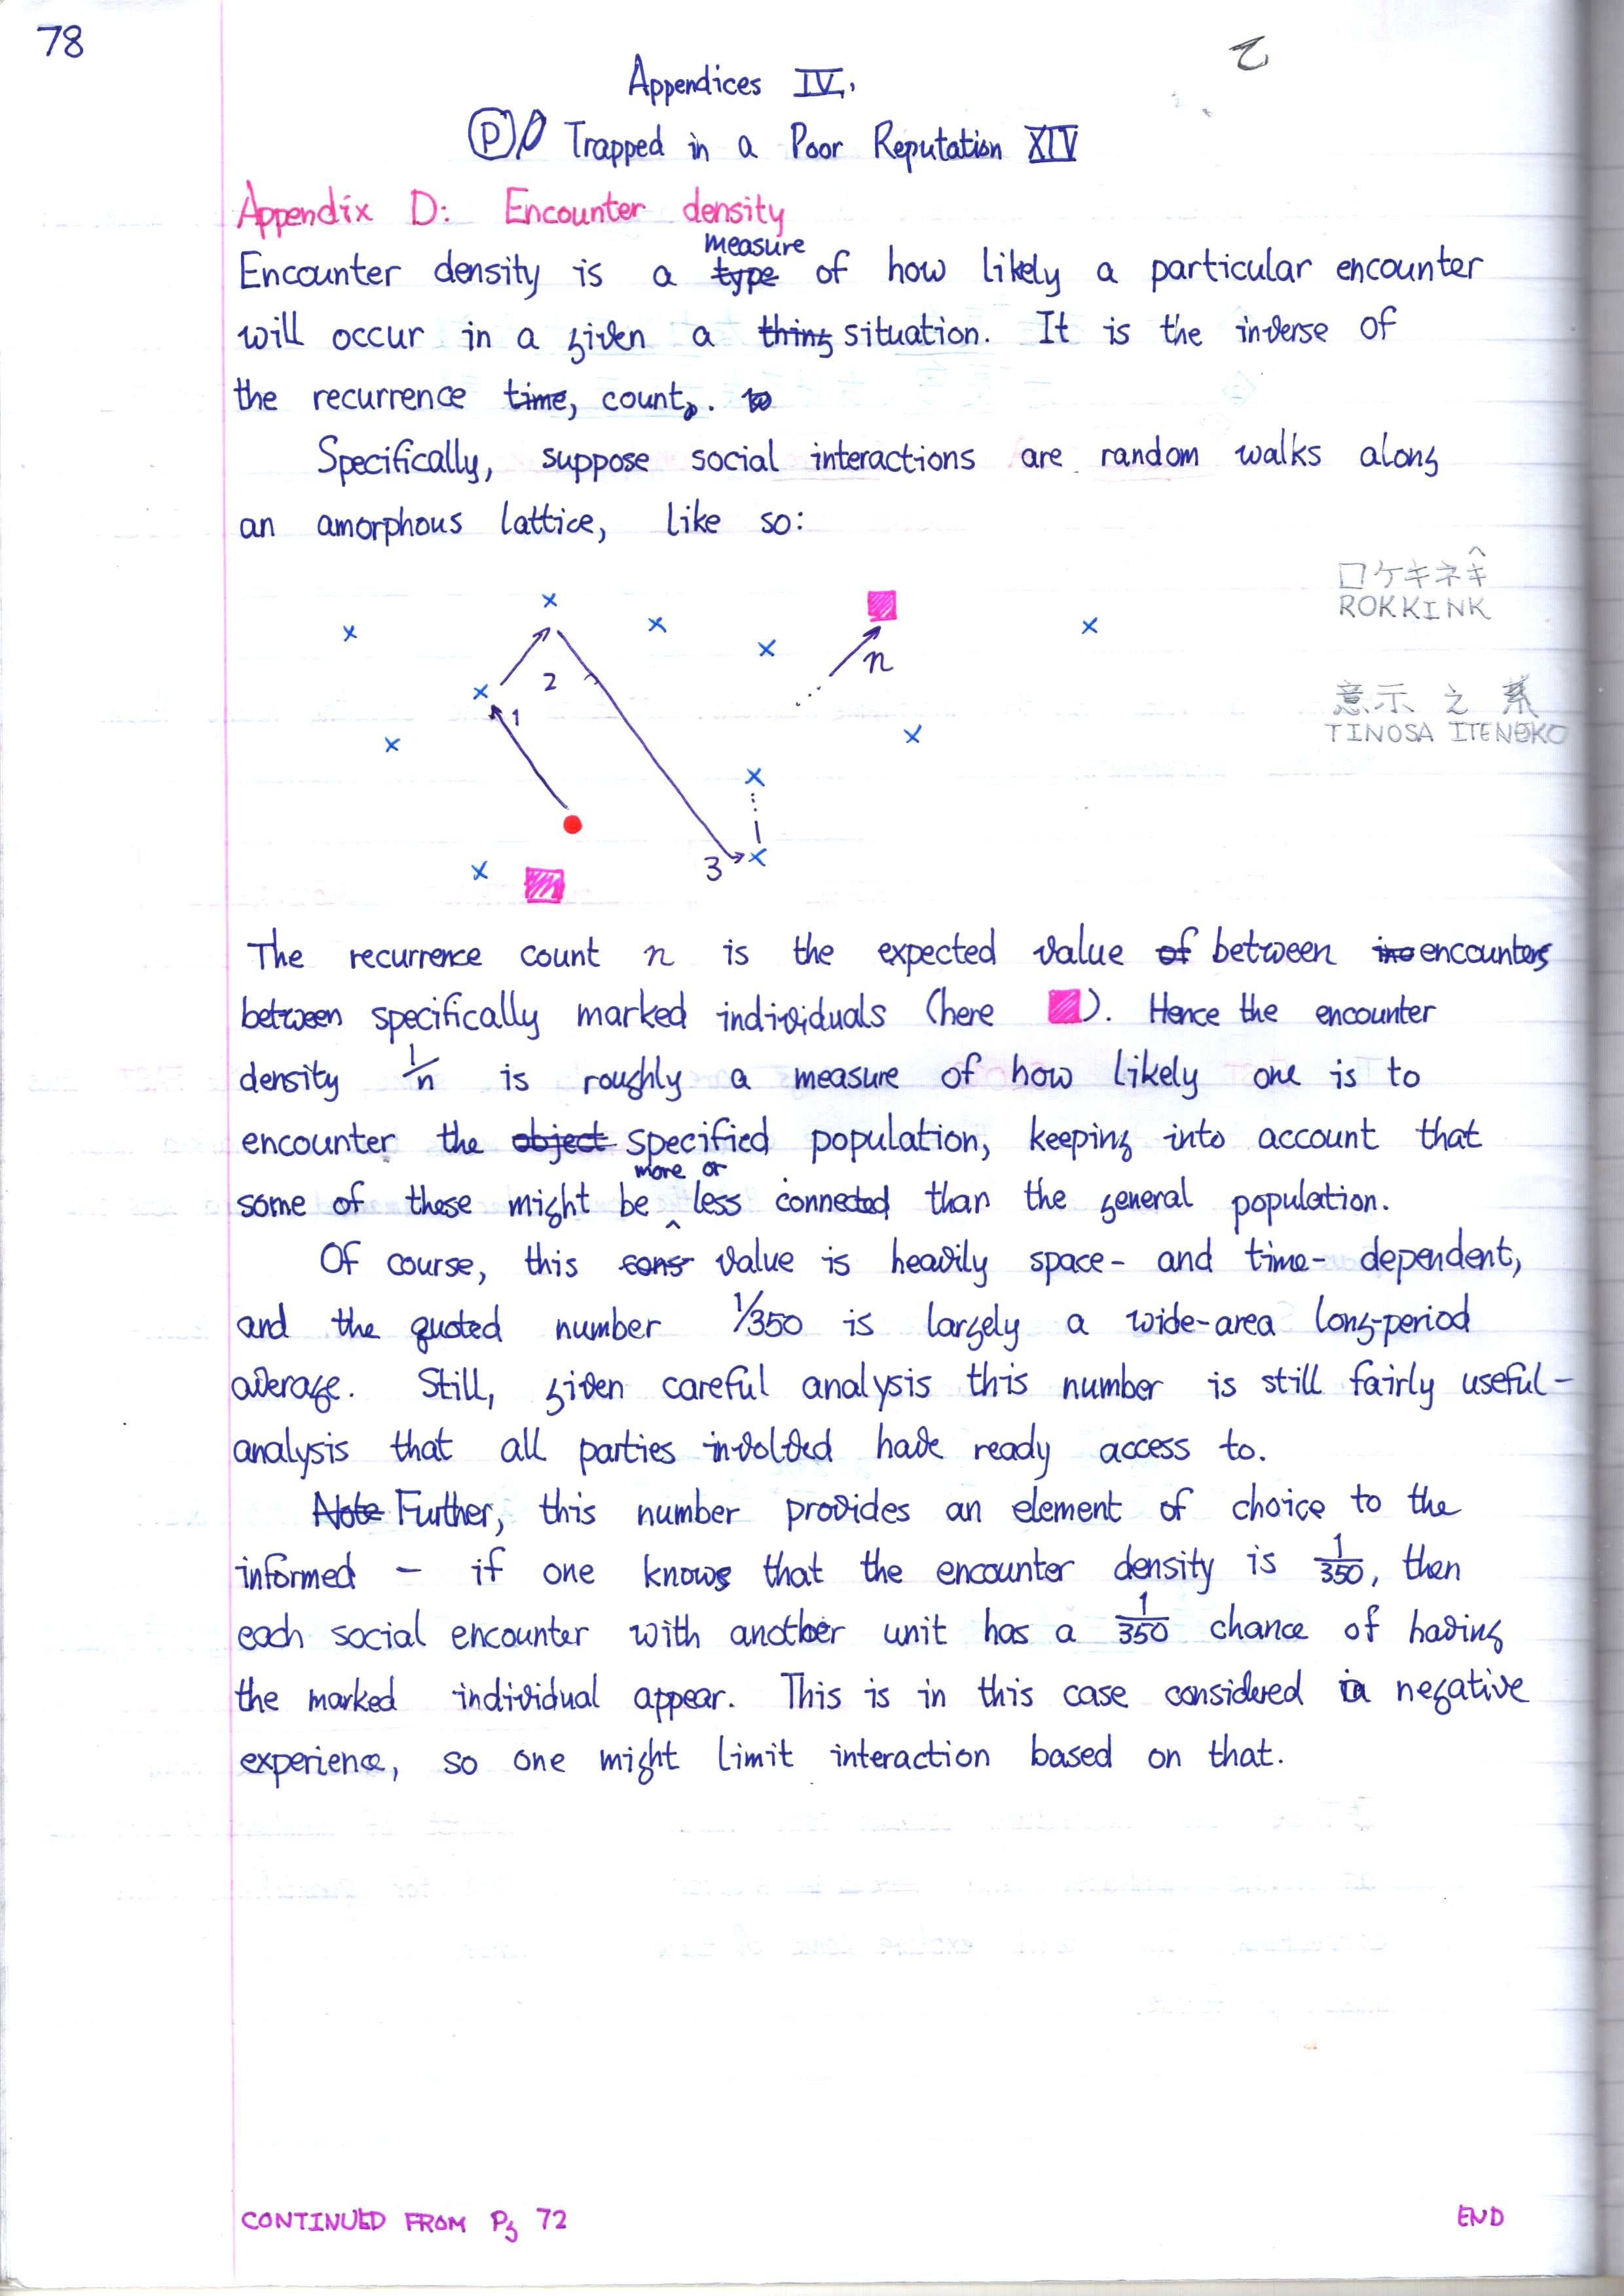 78
Appendices IV.
P Trapped in a Poor Reputation XIV
Appendix D: Encounter density
measure
Encounter density is a type of how likely a particular encounter
will occur in a given a thing situation. It is the inverse of
the recurrence time, count. to
Specifically, suppose social interactions are random walks along
an amorphous lattice, like so:
ロケキネキ
ROKKINK
n
2
1
意示之系
TINOSA ITENOKO
3
The recurrence count n is the expected value of between ino encounters
between specifically marked individuals (here ). Hence the encounter
density 1/n is roughly a measure of how likely one is to
encounter the object specified population, keeping into account that
more or
some of these might be ^ less connected than the general population.
Of course, this cons value is heavily space- and time- dependent,
and the quoted number 1/350 is largely a wide-area long-period
average. Still, given careful analysis this number is still fairly useful -
analysis that all parties involved have ready access to.
Note Further, this number provides an element of choice to the
informed - if one knows that the encounter density is 1/350, then
each social encounter with another unit has a 1/350 chance of having
the marked individual appear. This is in this case considered a negative
experience, so one might limit interaction based on that.
CONTINUED FROM Pg 72
END